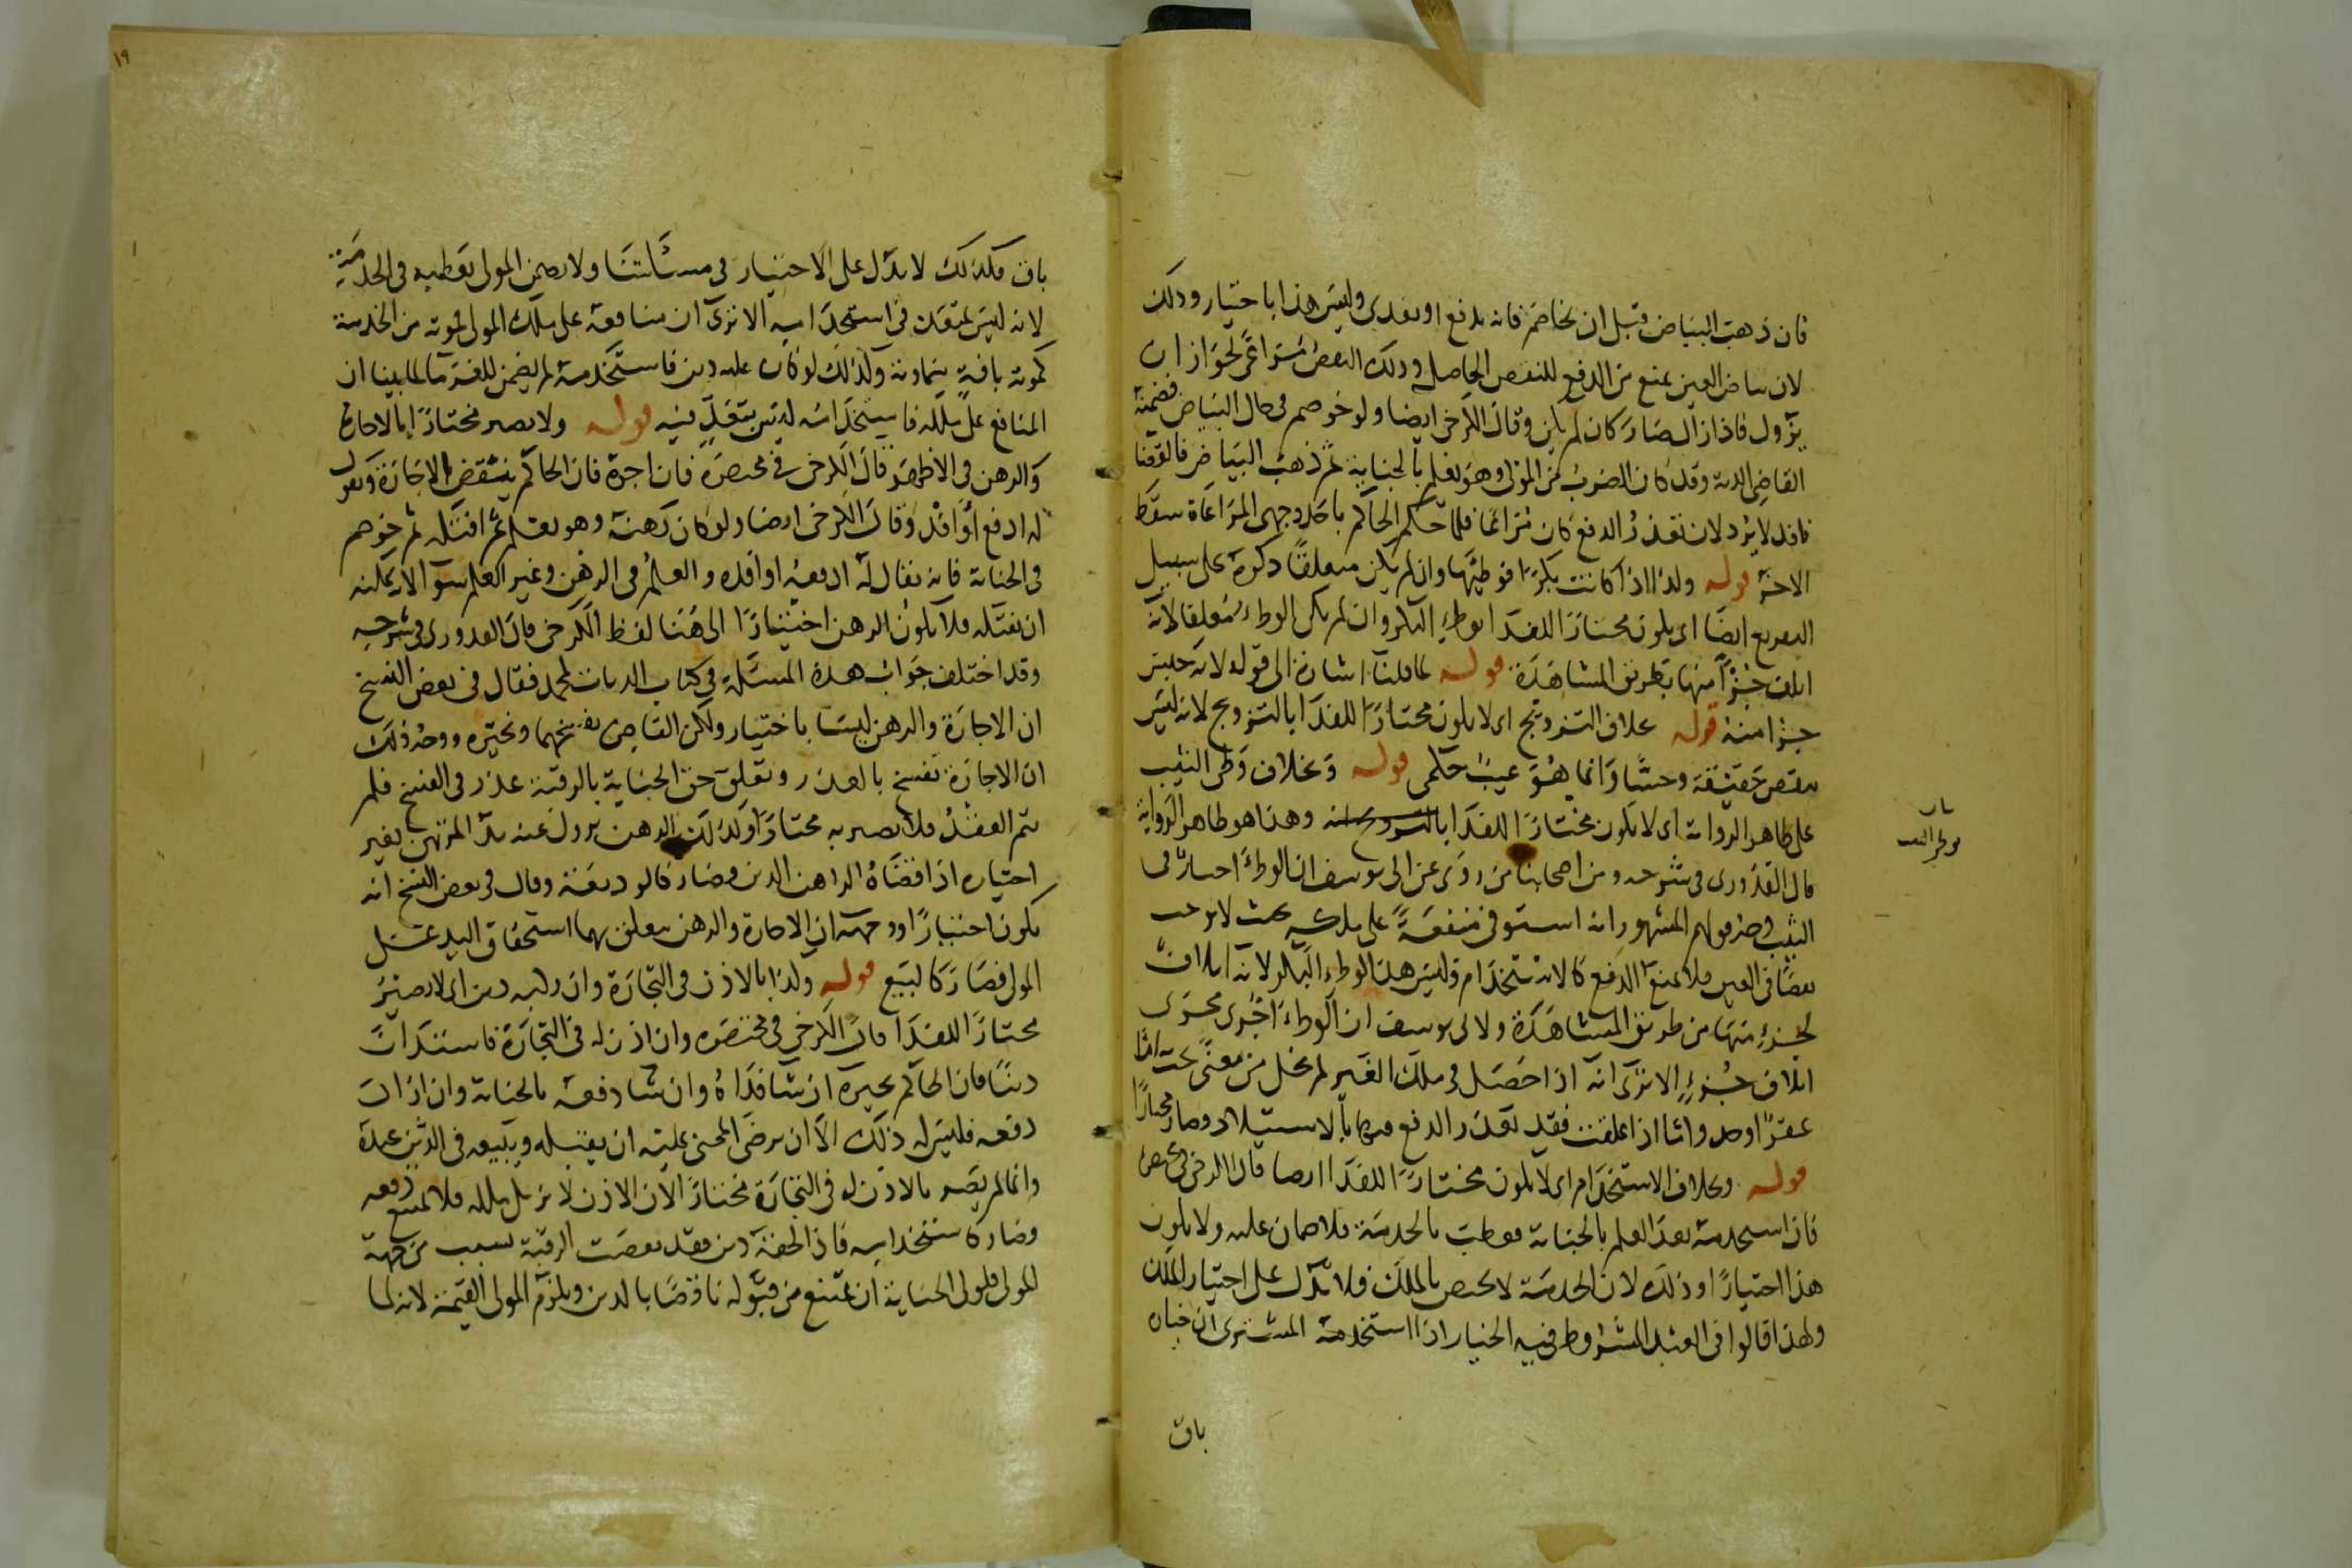 فان ذهب البياض قبل ان يخاصم فانه يدفع او يفدى وليس هذا باختيار وذلك
لان بياض العين يمنع من الدفع للنقص الحاصل وذلك النقص مراعى لجواز ان
يزول فاذا زال صار كان لم يكن وقال الكرخى ايضا ولو خوصم فى حال البياض فضمنه
القاضى الدية وقد كان الضرب من المولى وهو يعلم بالجناية ثم ذهب البياض فالقضاء
نافذ لا يرد لان تعذر الدفع كان مراعا فلما حكم الحاكم باحد وجهى المراعاة سقط
الاخر قوله ولذا اذا كانت بكرا فوطئها وان لم يكن معلقا ذكره على سبيل
التفريع ايضا اى يكون مختارا للفدا بوطء البكر وان لم يكن الوطء معلقا لانه
اتلف جزءا منها بطريق المشاهدة قوله لما قلنا اشارة الى قوله لانه حبس
جزا منه قوله بخلاف التزويج اى لا يكون مختارا للفدا بالتزويج لانه ليس
بنقص حقيقة وحسا وانما هو عيب حكمى قوله وبخلاف وطى الثيب
على ظاهر الرواية اى لا يكون مختارا للفدا وهذا هو ظاهر الرواية
قال القدورى فى شرحه ومن اصحابنا من روى عن ابى يوسف ان الوطء اختيار فى
الثيب وجه قولهم المشهور انه استوفى منفعة على ملكه بحيث لا يوجب
نقصا فى العين فلا يمنع الدفع كالاستخدام وليس هذا كوطء البكر لانه اتلاف
لجزء منها من طريق المشاهدة ولابى يوسف ان الوطء اجرى مجرى
اتلاف جزء الا ترى انه اذا حصل فى ملك الغير لم يخل من معنى يجب اما
عقرا او حد واما اذا علقت فقد تعذر الدفع فيها بالاستيلاد وصار مختارا
قوله وبخلاف الاستخدام اى لا يكون مختارا للفدا ايضا قال الكرخى فى مختصره
فان استخدمه بعد العلم بالجناية فعطب بالخدمة فلا ضمان عليه ولا يكون
هذا اختيارا وذلك لان الخدمة لا تختص بالملك فلا تدل على اختيار الملك
ولهذا قالوا فى العبد المشروط فيه الخيار اذا استخدمه المشترى ان خياره
باق
باق فكذلك لا يدل على الاختيار فى مسئلتنا ولا يضمن المولى بعطبه فى الخدمة
لانه ليس بمتعد فى استخدامه الا ترى ان منافعه على ملك المولى فموته من الخدمة
كموته بافة سماوية ولذلك لو كان عليه دين فاستخدمه لم يضمن للغرما لما بينا ان
المنافع على ملكه فاستخدامه ليس بتعد فيه قوله ولا يصير مختارا بالاجارة
والرهن فى الاظهر قال الكرخى فى مختصره فان اجره فان الحاكم ينقض الاجازة ويقول
له ادفع او افد وقال الكرخى ايضا ولو كان رهنه وهو يعلم ثم افتكه ثم خوصم
فى الجناية فانه يقال له ادفعه او افده والعلم فى الرهن وغير العلم سوا لا يمكنه
ان يفتكه فلا يكون الرهن اختيارا الى هنا لفظ الكرخى قال القدورى فى شرحه
وقد اختلف جواب هذه المسئلة فى كتاب الديات لمحمد فقال فى بعض النسخ
ان الاجارة والرهن ليسا باختيار ولكن القاضى يفسخهما ويخيره ووجه ذلك
ان الاجارة تفسخ بالعذر وتعلق حق الجناية بالرقبة عذر فى الفسخ فلم
يتم العقد فلا يصير به مختارا وكذلك الرهن يزول عنه يد المرتهن بغير
اختياره اذا اقضاه الراهن الدين وصار كالوديعة وقال فى بعض النسخ انه
يكون اختيارا ووجهه ان الاجارة والرهن يتعلق بهما استحقاق اليد على
المولى فصار كالبيع قوله ولذا بالاذن فى التجارة وان ركبه دين اى لا يصير
مختارا للفدا قال الكرخى فى مختصره وان اذن له فى التجارة فاستدان
دينا فان الحاكم يخيره ان شا فداه وان شا دفعه بالجناية وان اراد
دفعه فليس له ذلك الا ان يرضى المجنى عليه ان يقبله ويبيعه فى الدين عبده
وانما لم يصر بالاذن له فى التجارة مختارا لان الاذن لا يزيل ملكه فلا يمنع دفعه
وصار كاستخدامه فاذا لحقه دين فقد نقصت الرقبة بسبب من جهة
المولى فلولى الجناية ان يمتنع من قبوله ناقصا بالدين ويلزم المولى القيمة لانه لما